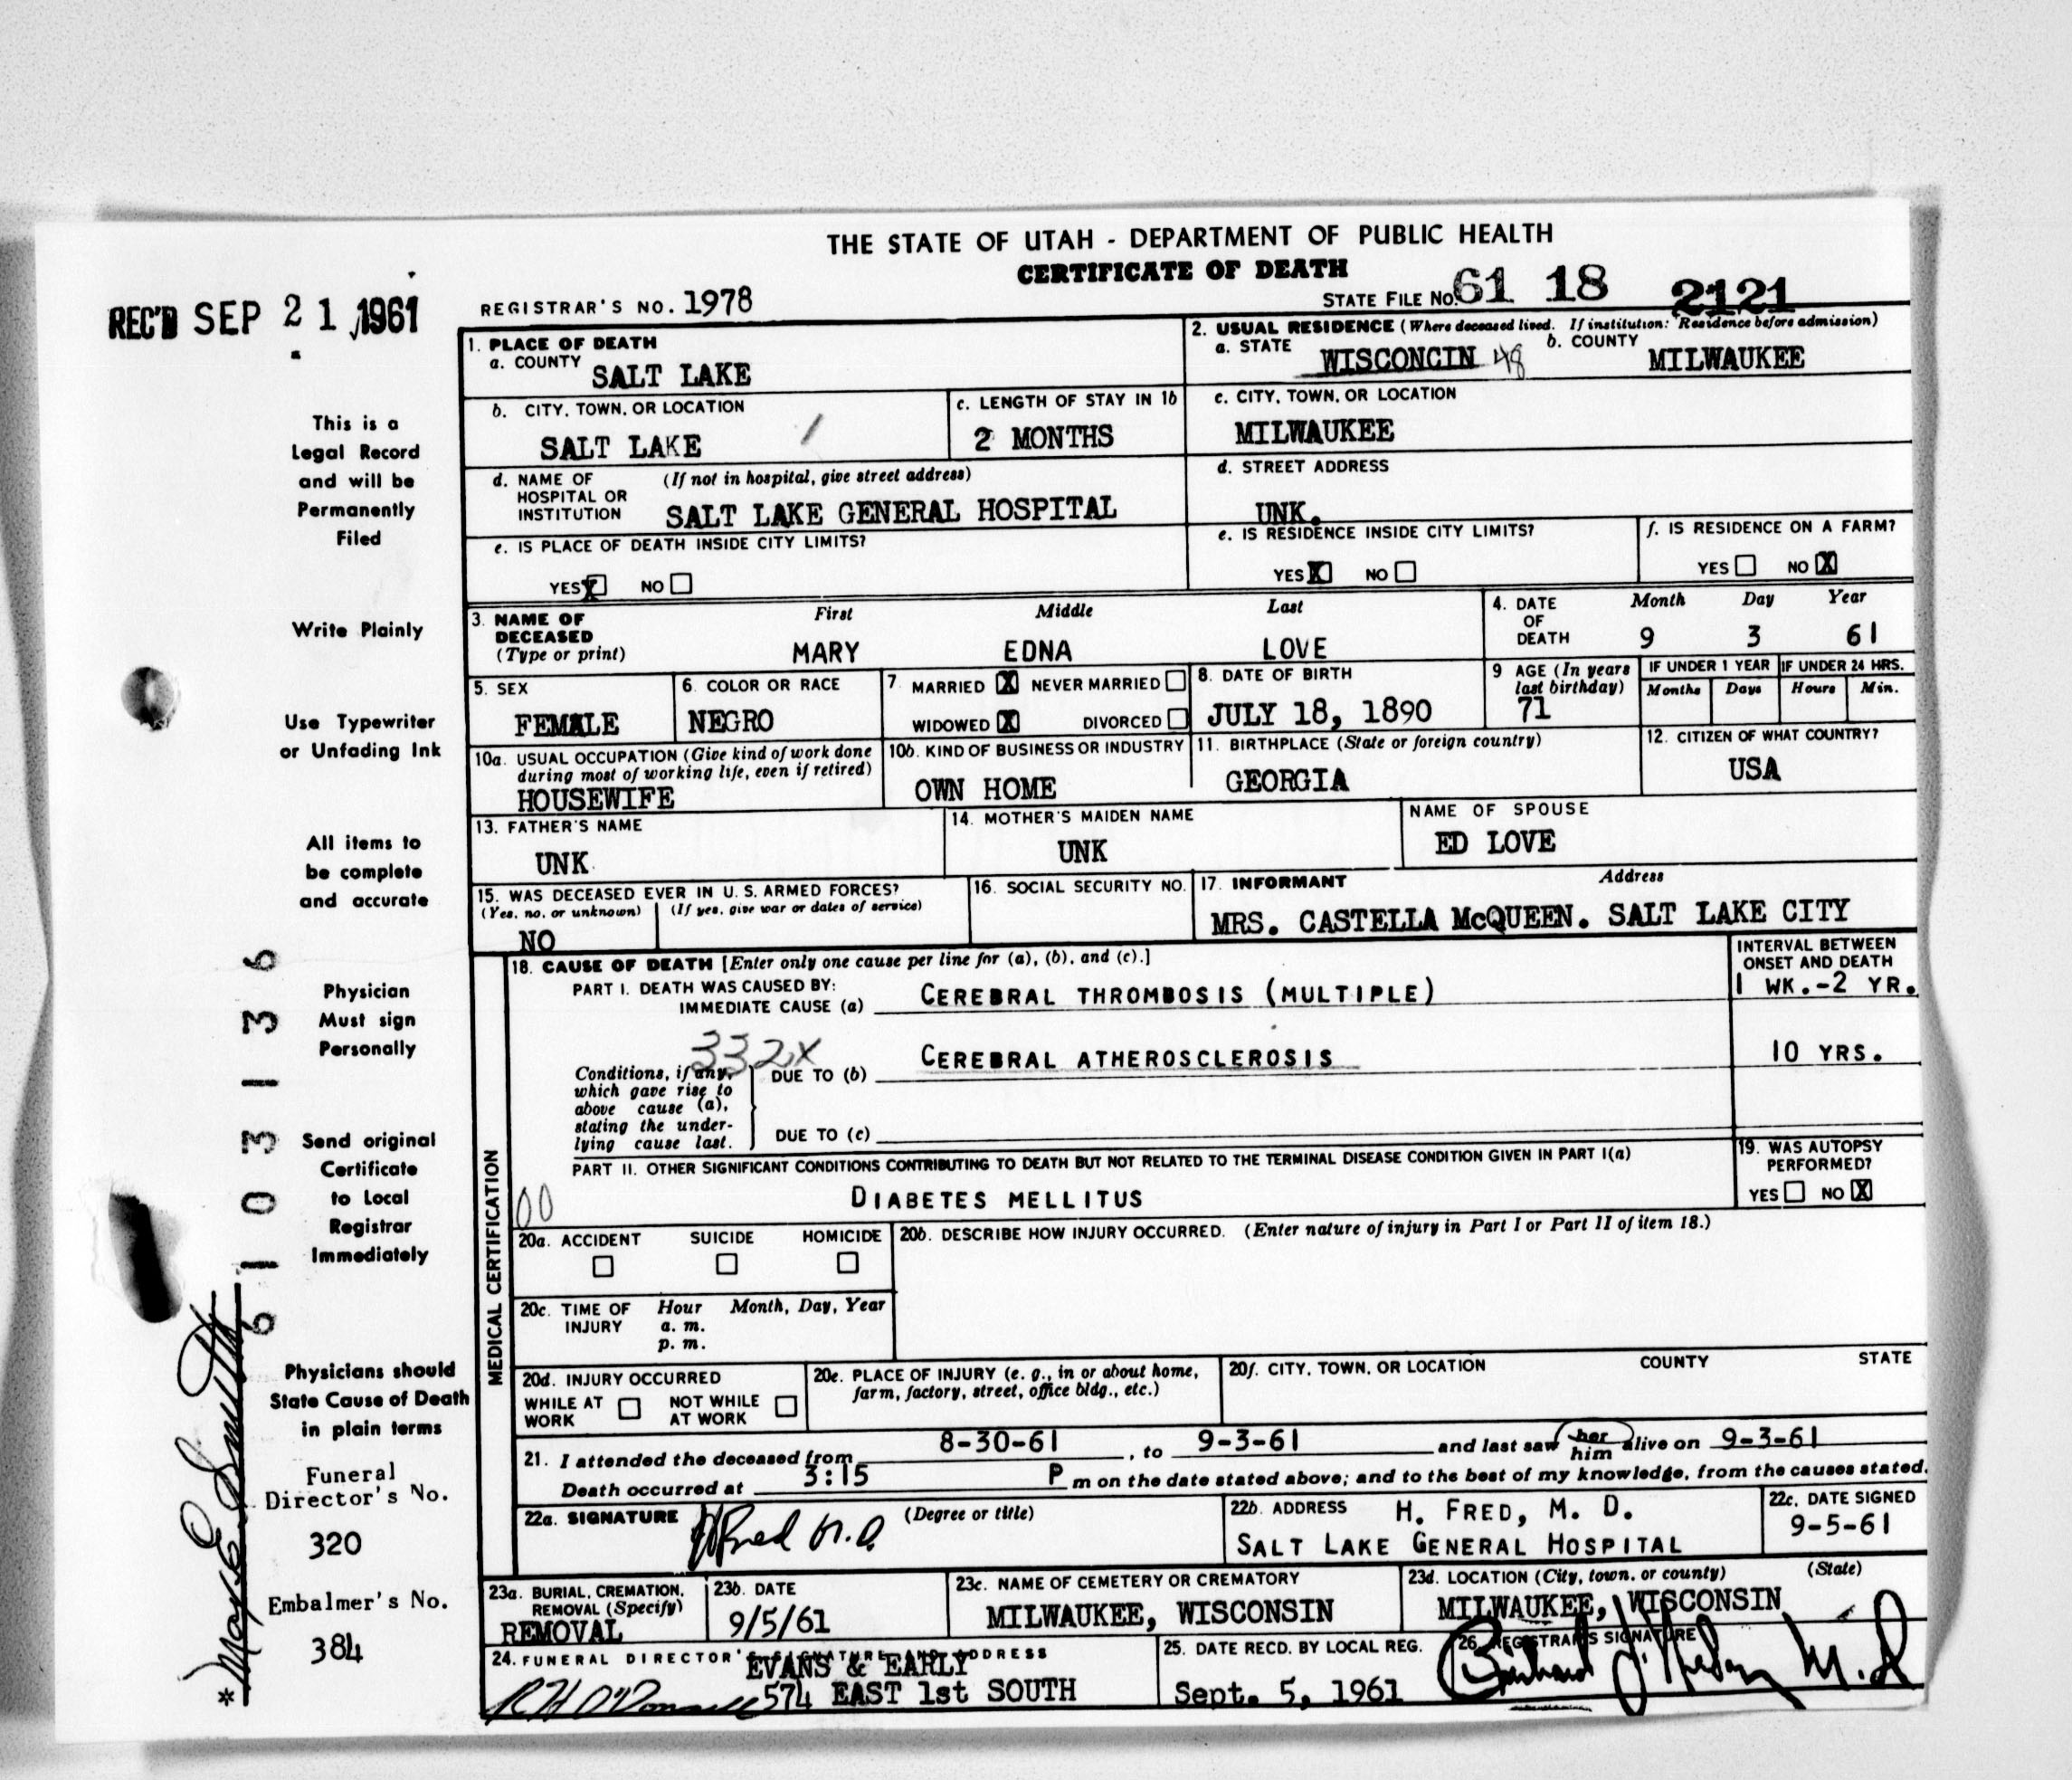 THE STATE OF UTAH - DEPARTMENT OF PUBLIC HEALTH
CERTIFICATE OF DEATH
REC'D SEP 21 1961
REGISTRAR'S NO. 1978
STATE FILE NO. 61 18 2121
1. PLACE OF DEATH
a. COUNTY SALT LAKE
2. USUAL RESIDENCE (Where deceased lived. If institution: Residence before admission)
a. STATE WISCONCIN 48 b. COUNTY MILWAUKEE
b. CITY, TOWN, OR LOCATION SALT LAKE
c. LENGTH OF STAY IN 1b 2 MONTHS
c. CITY, TOWN, OR LOCATION MILWAUKEE
d. NAME OF HOSPITAL OR INSTITUTION (If not in hospital, give street address)
SALT LAKE GENERAL HOSPITAL
d. STREET ADDRESS UNK.
e. IS PLACE OF DEATH INSIDE CITY LIMITS?
YES X NO
e. IS RESIDENCE INSIDE CITY LIMITS?
YES X NO
f. IS RESIDENCE ON A FARM?
YES NO X
3. NAME OF DECEASED (Type or print)
First Middle Last
MARY EDNA LOVE
4. DATE OF DEATH Month Day Year
9 3 61
5. SEX FEMALE
6. COLOR OR RACE NEGRO
7. MARRIED X NEVER MARRIED
WIDOWED X DIVORCED
8. DATE OF BIRTH JULY 18, 1890
9 AGE (In years last birthday) 71
IF UNDER 1 YEAR Months Days
IF UNDER 24 HRS. Hours Min.
10a. USUAL OCCUPATION (Give kind of work done during most of working life, even if retired)
HOUSEWIFE
10b. KIND OF BUSINESS OR INDUSTRY
OWN HOME
11. BIRTHPLACE (State or foreign country)
GEORGIA
12. CITIZEN OF WHAT COUNTRY?
USA
13. FATHER'S NAME
UNK
14. MOTHER'S MAIDEN NAME
UNK
NAME OF SPOUSE
ED LOVE
15. WAS DECEASED EVER IN U. S. ARMED FORCES?
(Yes, no, or unknown) (If yes, give war or dates of service)
NO
16. SOCIAL SECURITY NO.
17. INFORMANT Address
MRS. CASTELLA McQUEEN. SALT LAKE CITY
MEDICAL CERTIFICATION
18. CAUSE OF DEATH [Enter only one cause per line for (a), (b), and (c).]
INTERVAL BETWEEN ONSET AND DEATH
PART I. DEATH WAS CAUSED BY:
IMMEDIATE CAUSE (a) CEREBRAL THROMBOSIS (MULTIPLE) 1 WK.-2 YR.
332X
Conditions, if any, which gave rise to above cause (a), stating the underlying cause last.
DUE TO (b) CEREBRAL ATHEROSCLEROSIS 10 YRS.
DUE TO (c)
PART II. OTHER SIGNIFICANT CONDITIONS CONTRIBUTING TO DEATH BUT NOT RELATED TO THE TERMINAL DISEASE CONDITION GIVEN IN PART I(a)
00 DIABETES MELLITUS
19. WAS AUTOPSY PERFORMED?
YES NO X
20a. ACCIDENT SUICIDE HOMICIDE
20b. DESCRIBE HOW INJURY OCCURRED. (Enter nature of injury in Part I or Part II of item 18.)
20c. TIME OF INJURY Hour Month, Day, Year
a. m.
p. m.
20d. INJURY OCCURRED
WHILE AT WORK NOT WHILE AT WORK
20e. PLACE OF INJURY (e. g., in or about home, farm, factory, street, office bldg., etc.)
20f. CITY, TOWN, OR LOCATION COUNTY STATE
21. I attended the deceased from 8-30-61, to 9-3-61 and last saw her him alive on 9-3-61
Death occurred at 3:15 P m on the date stated above; and to the best of my knowledge, from the causes stated.
22a. SIGNATURE (Degree or title)
HFred M.D.
22b. ADDRESS H. FRED, M. D.
SALT LAKE GENERAL HOSPITAL
22c. DATE SIGNED
9-5-61
23a. BURIAL, CREMATION, REMOVAL (Specify)
REMOVAL
23b. DATE
9/5/61
23c. NAME OF CEMETERY OR CREMATORY
MILWAUKEE, WISCONSIN
23d. LOCATION (City, town, or county) (State)
MILWAUKEE, WISCONSIN
24. FUNERAL DIRECTOR'S SIGNATURE AND ADDRESS
EVANS & EARLY
R H O'Donnell 574 EAST 1st SOUTH
25. DATE RECD. BY LOCAL REG.
Sept. 5, 1961
26. REGISTRAR'S SIGNATURE
M.D
This is a
Legal Record
and will be
Permanently
Filed
Write Plainly
Use Typewriter
or Unfading Ink
All items to
be complete
and accurate
Physician
Must sign
Personally
Send original
Certificate
to Local
Registrar
Immediately
Physicians should
State Cause of Death
in plain terms
Funeral
Director's No.
320
Embalmer's No.
384
61 03 1 136
* E Smith